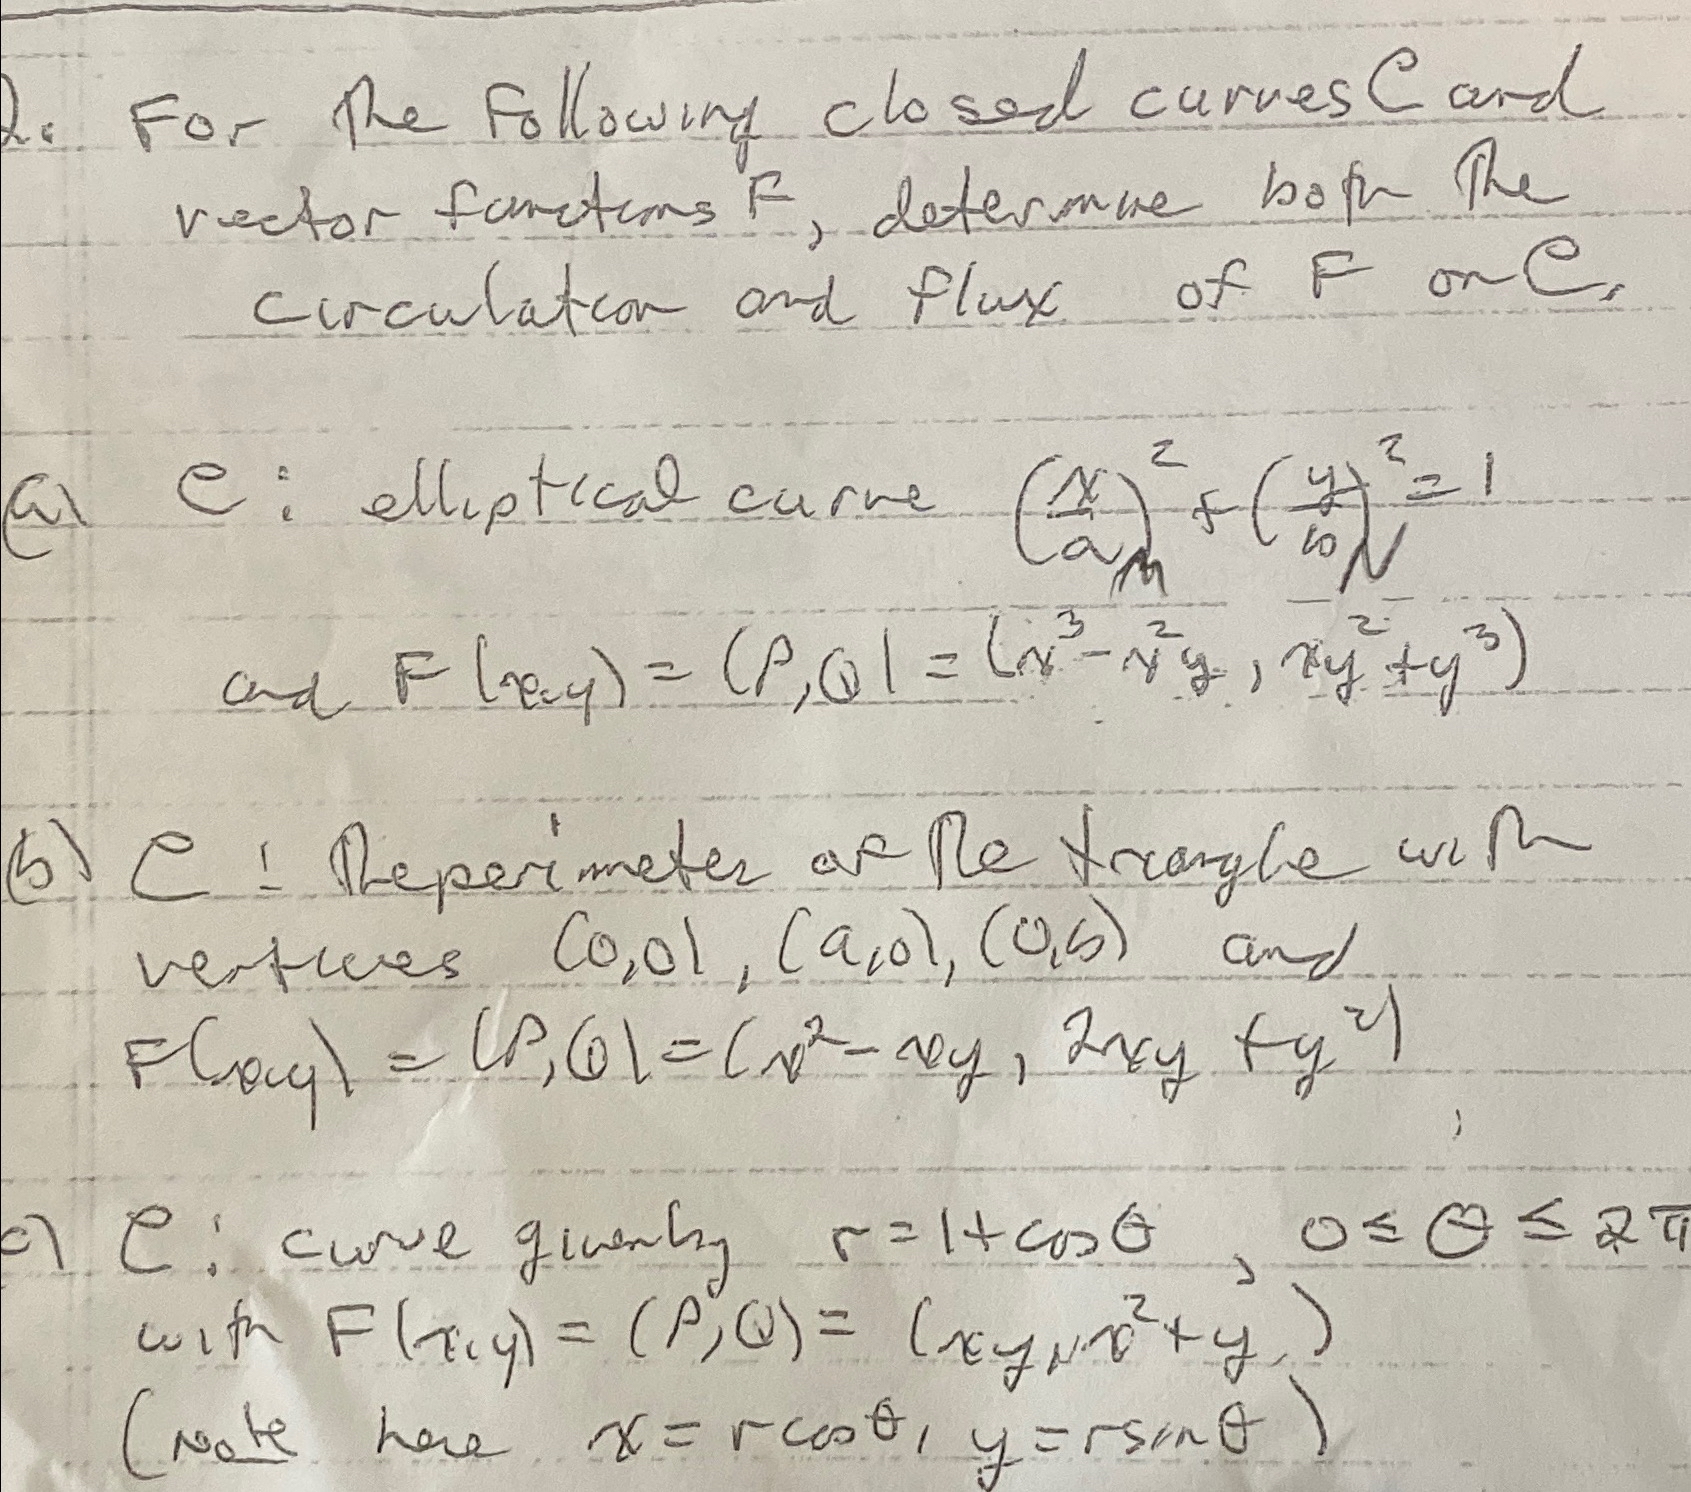 2. For the following closed curves C and
vector functions F, determine both the
circulation and flux of F on C.
(a) C: elliptical curve (x/a)² + (y/b)² = 1
and F(x,y) = (P,Q) = (x³ - x²y, xy² + y³)
(b) C: the perimeter of the triangle with
vertices (0,0), (a,0), (0,b) and
F(x,y) = (P,Q) = (x² - xy, 2xy + y²)
c) C: curve given by r = 1 + cosθ, 0 ≤ θ ≤ 2π
with F(x,y) = (P,Q) = (xy, x² + y)
(note here x = rcosθ, y = rsinθ)